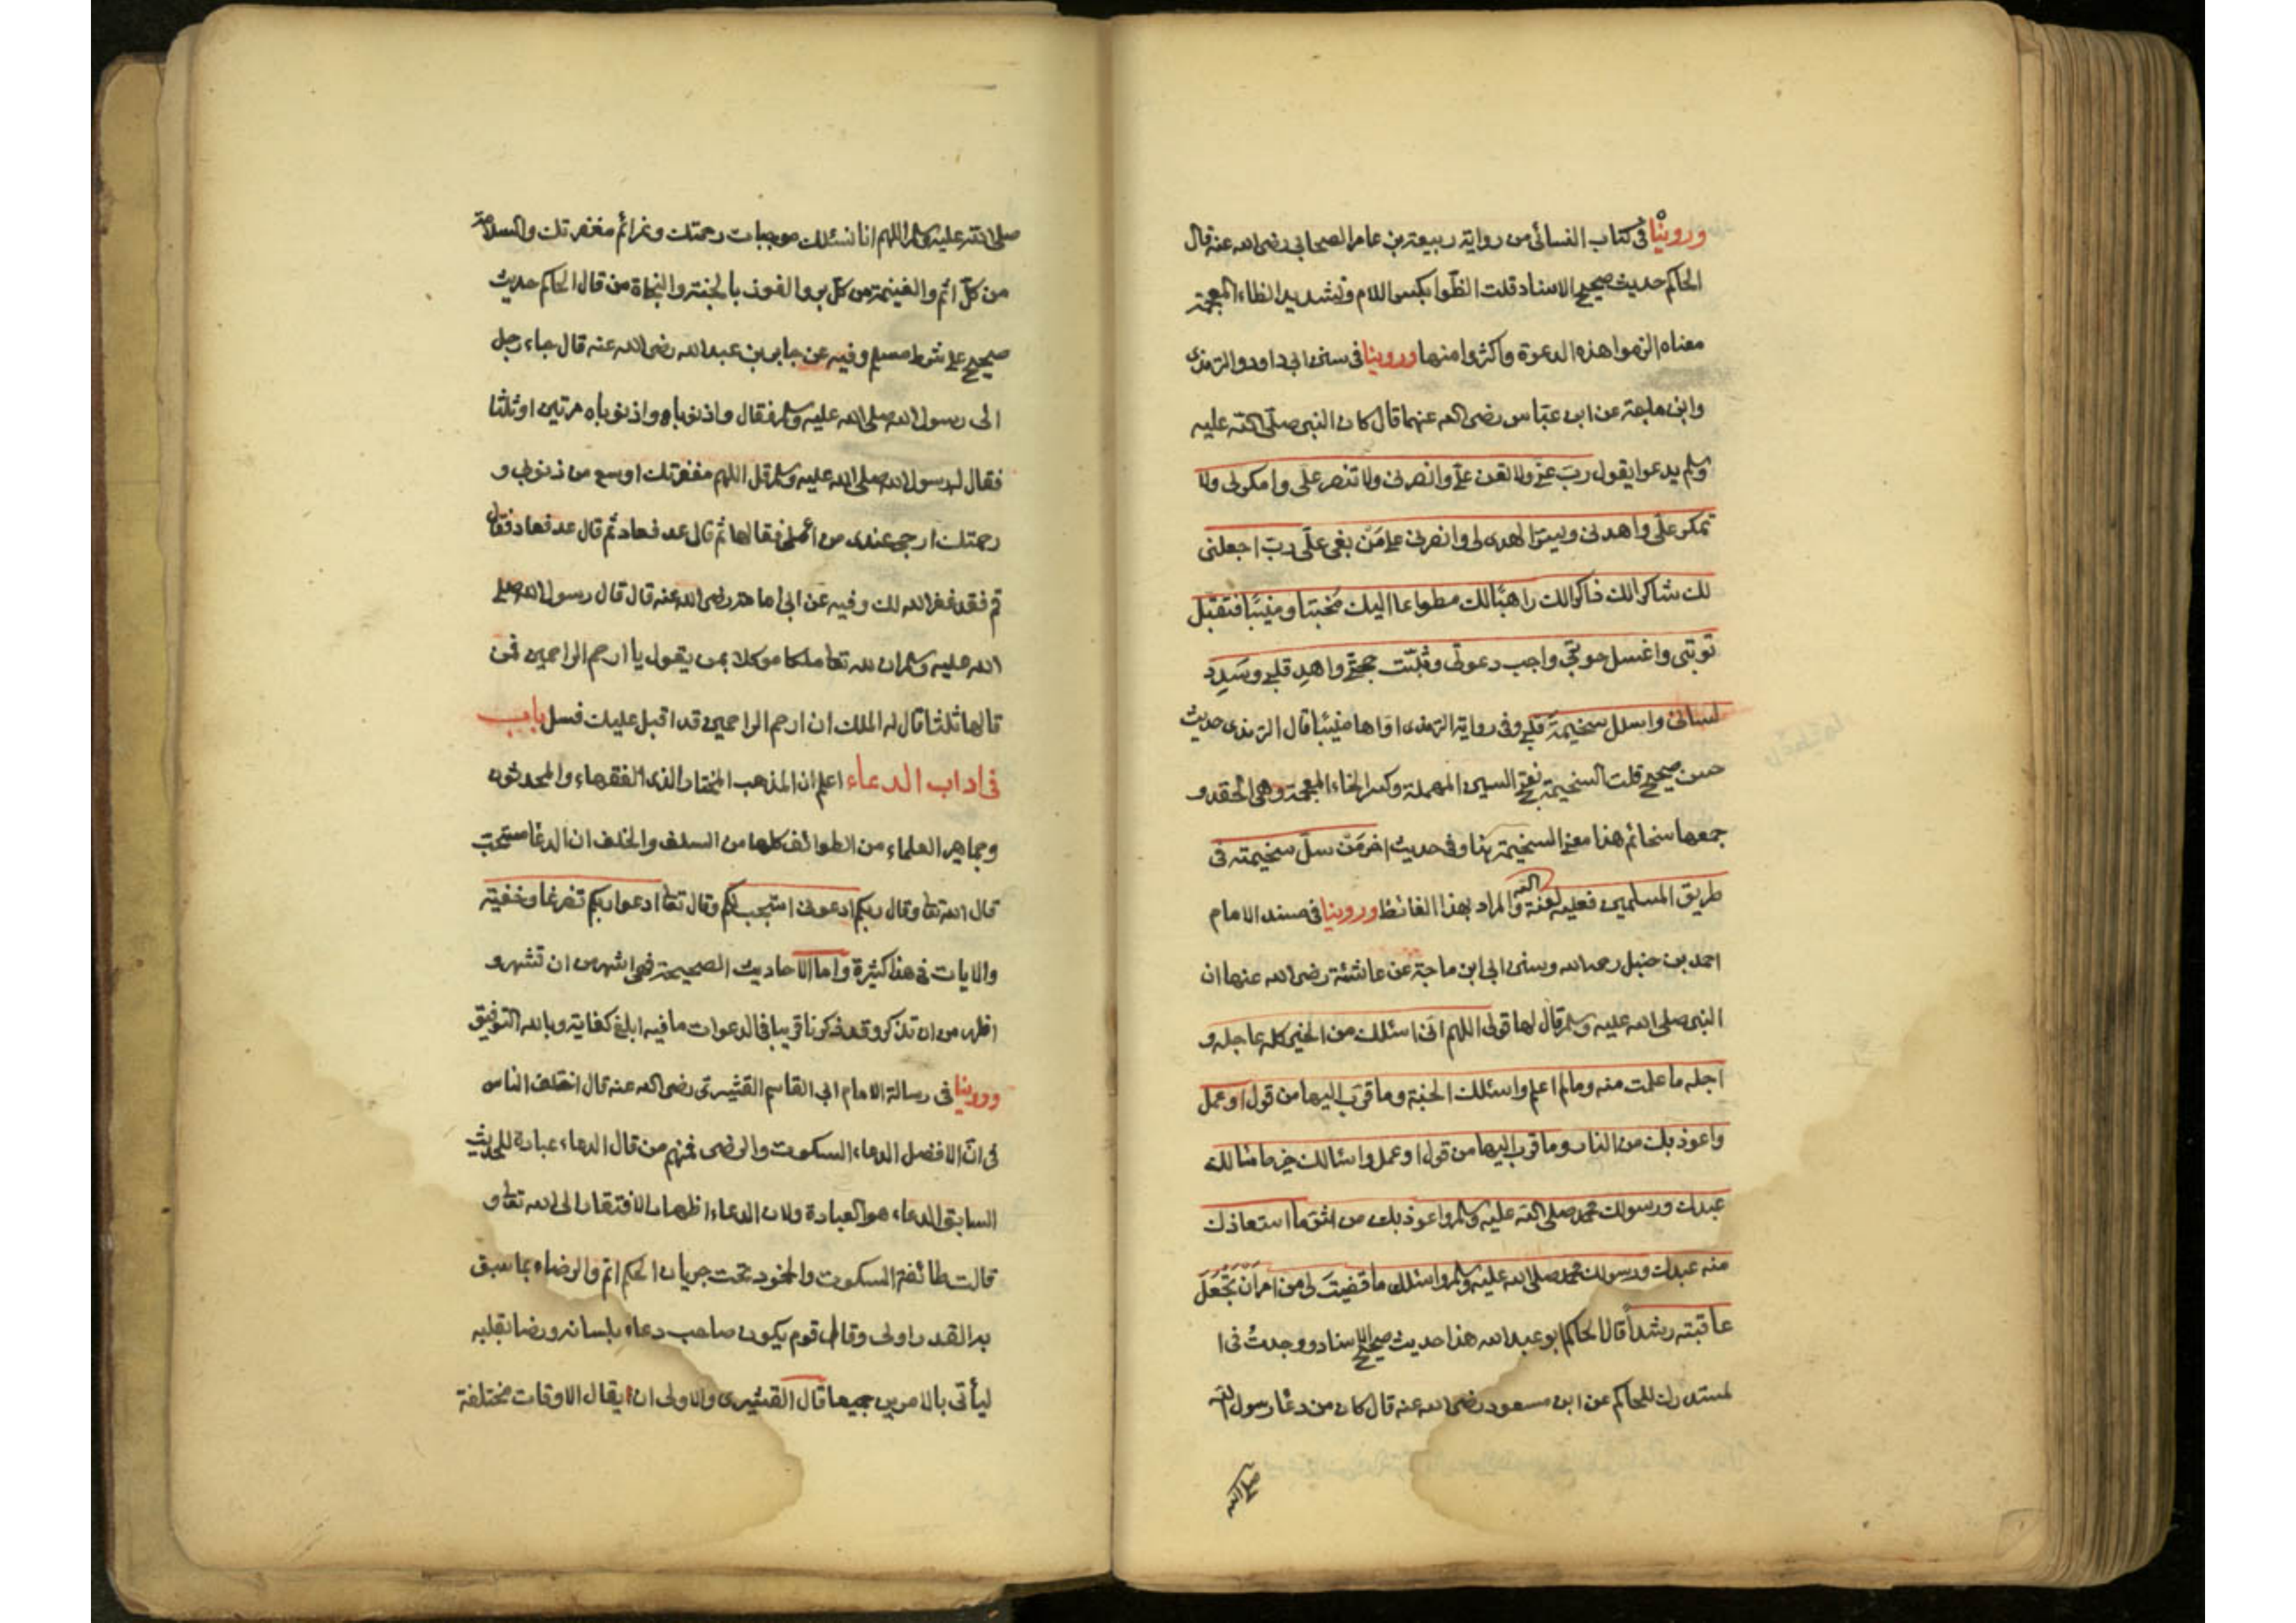 وروينا فى كتاب النسائى من رواية ربيعة بن عامر الصحابى رضى الله عنه قال
الحاكم حديث صحيح الاسناد قلت الظّوا بكسر اللام وتشديد الظاء المعجمة
معناه الزموا هذه الدعوة واكثروا منها وروينا فى سنن ابى داود والترمذى
وابن ماجة عن ابن عبّاس رضى الله عنهما قال كان النبى صلّى الله عليه
وسلم يدعوا يقول ربّ اعنّى ولا تعن علىّ وانصرنى ولا تنصر علّى وامكرلى ولا
تمكر علّى واهدنى ويسّر الهدى لى وانصرنى على مَنْ بغى علّى ربّ اجعلنى
لك شاكرا لك ذاكرا لك راهبًا لك مطواعا اليك مخبتا ومنيبًا فتقبّل
توبتى واغسل حوبتى واجب دعوتى وثبّت حجتى واهدِ قلبى وسَدِد
لسانى واسلل سخيمَة قلبى وفى رواية الترمذى اواها منيبًا قال الترمذى حديث
حسن صحيح قلت السخيمة بفتح السين المهملة وكسر الخاء المعجمة وهى الحقد و
جمعها سخائم هذا معنى السخيمة هنا وفى حديث اخر مَنْ سلّ سخيمته فى
طريق المسلمين فعليه لعنة الله والمراد بهذا الغائط وروينا فى مسند الامام
احمد بن حنبل رحمه الله وسنن ابى ابن ماجة عن عائشة رضى الله عنها ان
النبى صلى الله عليه وسلم قال لها قولى اللهم انى اسئلك من الخير كله عاجله و
اجله ما علمت منه ومالم اعلم واسئلك الجنة وما قرّب اليها من قول او عمل
واعوذ بك من النار وما قرب اليها من قول او عمل واسالك خير ما سالك
عبدك ورسولك محمد صلى الله عليه وسلم واعوذ بك من شرّ ما استعاذك
منه عبدك ورسولك محمد صلى الله عليه وسلم واسئلك ما قضيتَ لى من امر اَنْ تَجْعَلَ
عاقبته رشداً قال الحاكم ابو عبد الله هذا حديث صحيح الاسناد ووجدتُ فى ا
لمستدرك للحاكم عن ابن مسعود رضى الله عنه قال كان من دعا رسول الله
صلى الله
صلى الله عليه وسلم اللهم انا نسئلك موجبات رحمتك وعزائم مغفرتك والسلامة
من كلّ اثم والغنيمة من كلّ بر والفوز بالجنة والنجاة من قال الحاكم حديث
صحيح على شرط مسلم وفيه عن جابر بن عبد الله رضى الله عنه قال جاء رجل
الى رسول الله صلى الله عليه وسلم فقال واذنوباه واذنوباه مرتين او ثلثا
فقال له رسول الله صلى الله عليه وسلم قل اللهم مغفرتك اوسع من ذنوبى و
رحمتك ارجى عندى من عملى فقالها ثم قال عد فعاد ثم قال عد فعاد فقال
قم فقد غفر الله لك وفيه عن ابى امامة رضى الله عنه قال قال رسول الله صلى
الله عليه وسلم ان لله تعا ملكا موكلا بمن يقول يا ارحم الراحمين فمن
قالها ثلثا قال له الملك ان ارحم الراحمين قد اقبل عليك فسل باب
فى اداب الدعاء اعلم ان المذهب المختار الذى الفقهاء والمحدثون
وجماهير العلماء من الطوائف كلها من السلف والخلف ان الدعا مستحبّ
قال الله تعا وقال ربكم ادعونى استجب لكم وقال تعا ادعوا ربكم تضرعا وخفية
والايات فى هذا كثيرة واما الاحاديث الصحيحة فهى اشهر من ان تشهر و
اظهر من ان تذكر وقد ذكرنا قريبا فى الدعوات ما فيه ابلغ كفاية وبالله التوفيق
وروينا فى رسالة الامام ابى القاسم القشيرى رضى الله عنه قال اختلف الناس
فى انّ الافضل الدعاء السكوت والرضى فمنهم من قال الدعاء عبادة للحديث
السابق الدعاء هو العبادة ولان الدعاء اظهار الافتقار الى الله تعا و
قالت طائفة السكوت والخمود تحت جريان الحكم اتم والرضاء بما سبق
به القدر اولى وقال قوم يكون صاحب دعاء بلسانه ورضا بقلبه
ليأتى بالامرين جميعا قال القشيرى والاولى ان يقال الاوقات مختلفة